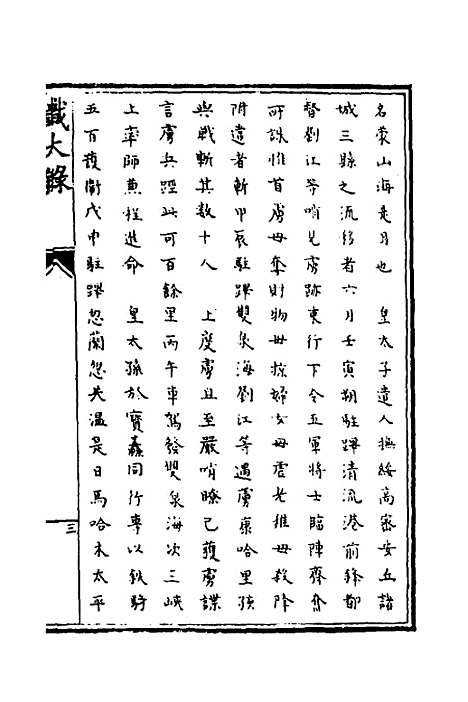 名蒙山海是月也　皇太子遣人撫綏高密安丘諸
城三縣之流移者六月壬寅朔駐蹕清流港前鋒都
督劉江等哨見虜跡東行下令五軍將士臨陣齊奮
可誅惟首虜毋奪財物毋掠婦女毋虐老稚毋殺降
附違者斬甲辰駐蹕雙泉海劉江等遇虜康哈里孩
與戰斬其數十人　上度虜且至嚴哨瞭已獲虜諜
言虜兵距此可百餘里丙午車駕發雙泉海次三峽
上率師兼程進命　皇太孫於寶纛同行專以鉄騎
五百護衛戊申駐蹕忽蘭忽失溫是日馬哈木太平
識大錄
八
三